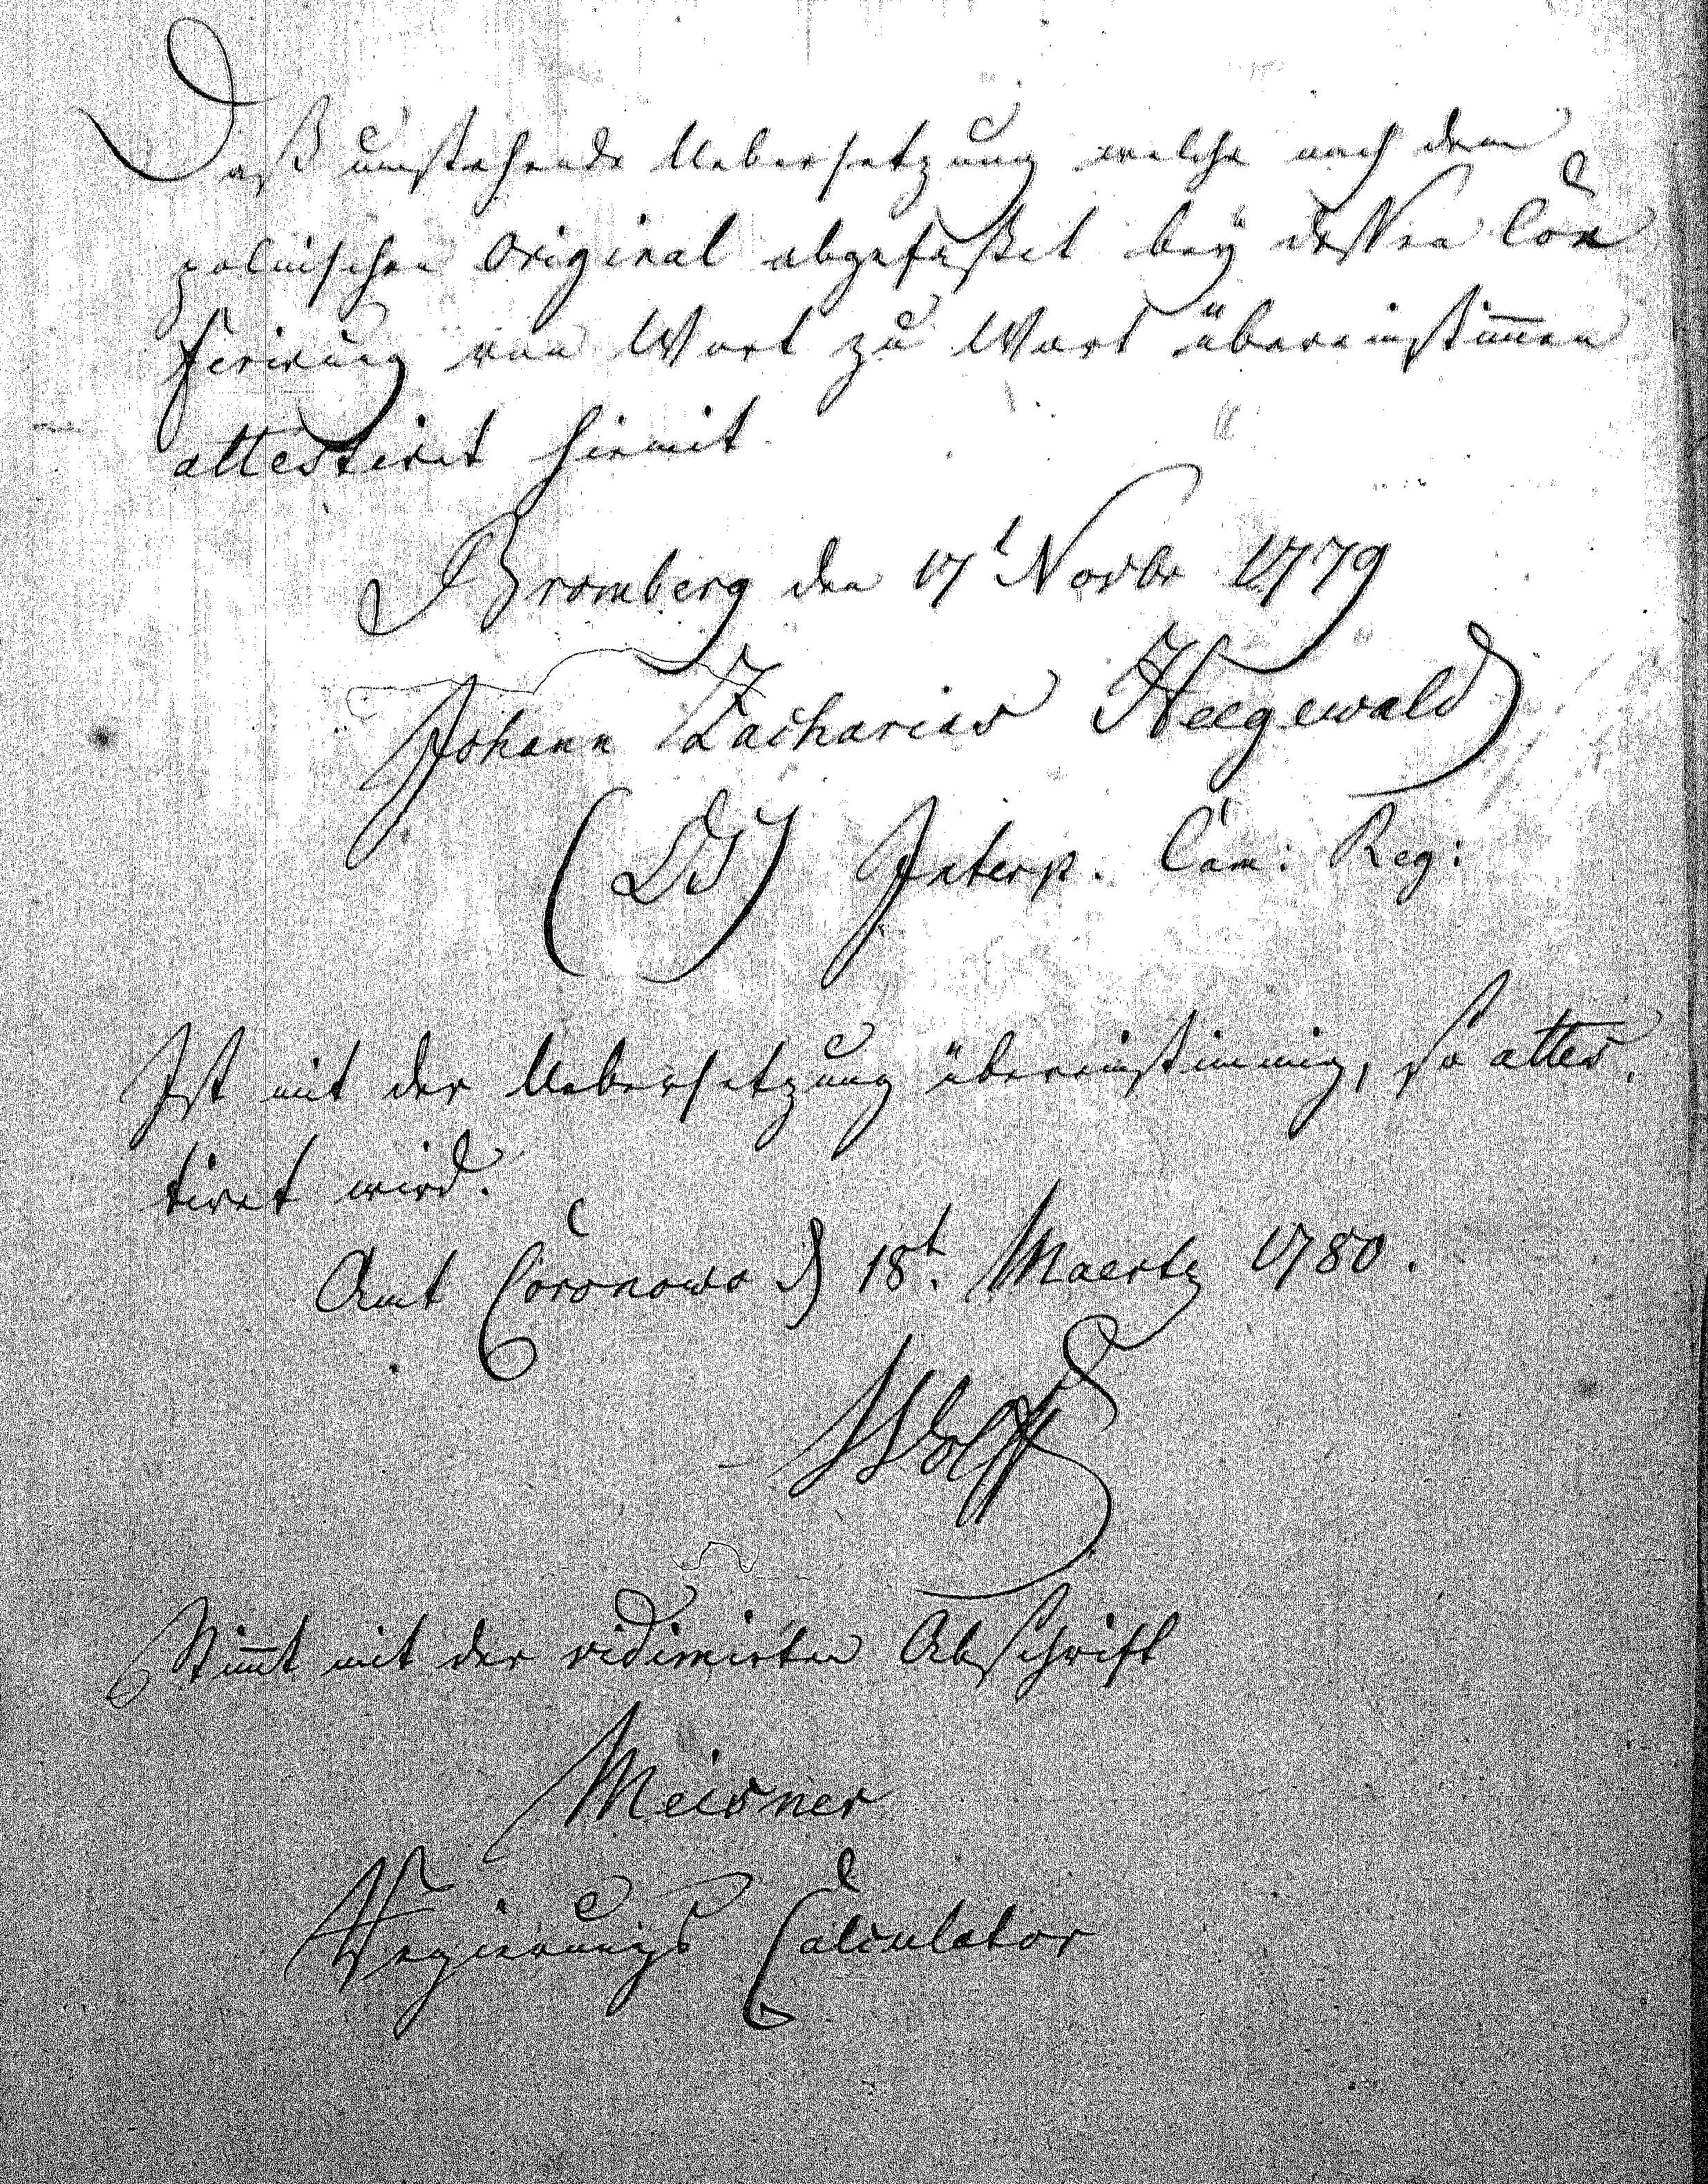 Daß umstehende Uebersetzung welche nach dem
polnischen Original abgefasset bey dessen Con
ferirung von Wort zu Wort übereinstim̅en
attestiret hiemit
Bromberg den 17t Novbr 1779
Johann Zacharias Heegewald
(LS) Interp. Cam: Reg:
Ist mit der Uebersetzung übereinstimmig, so attes
tiret wird.
Amt Coronowo d 18t. Maertz 1780.
Wolff
Stim̅t mit der vidimirten Abschrift
Meisner
Regierungs Calculator